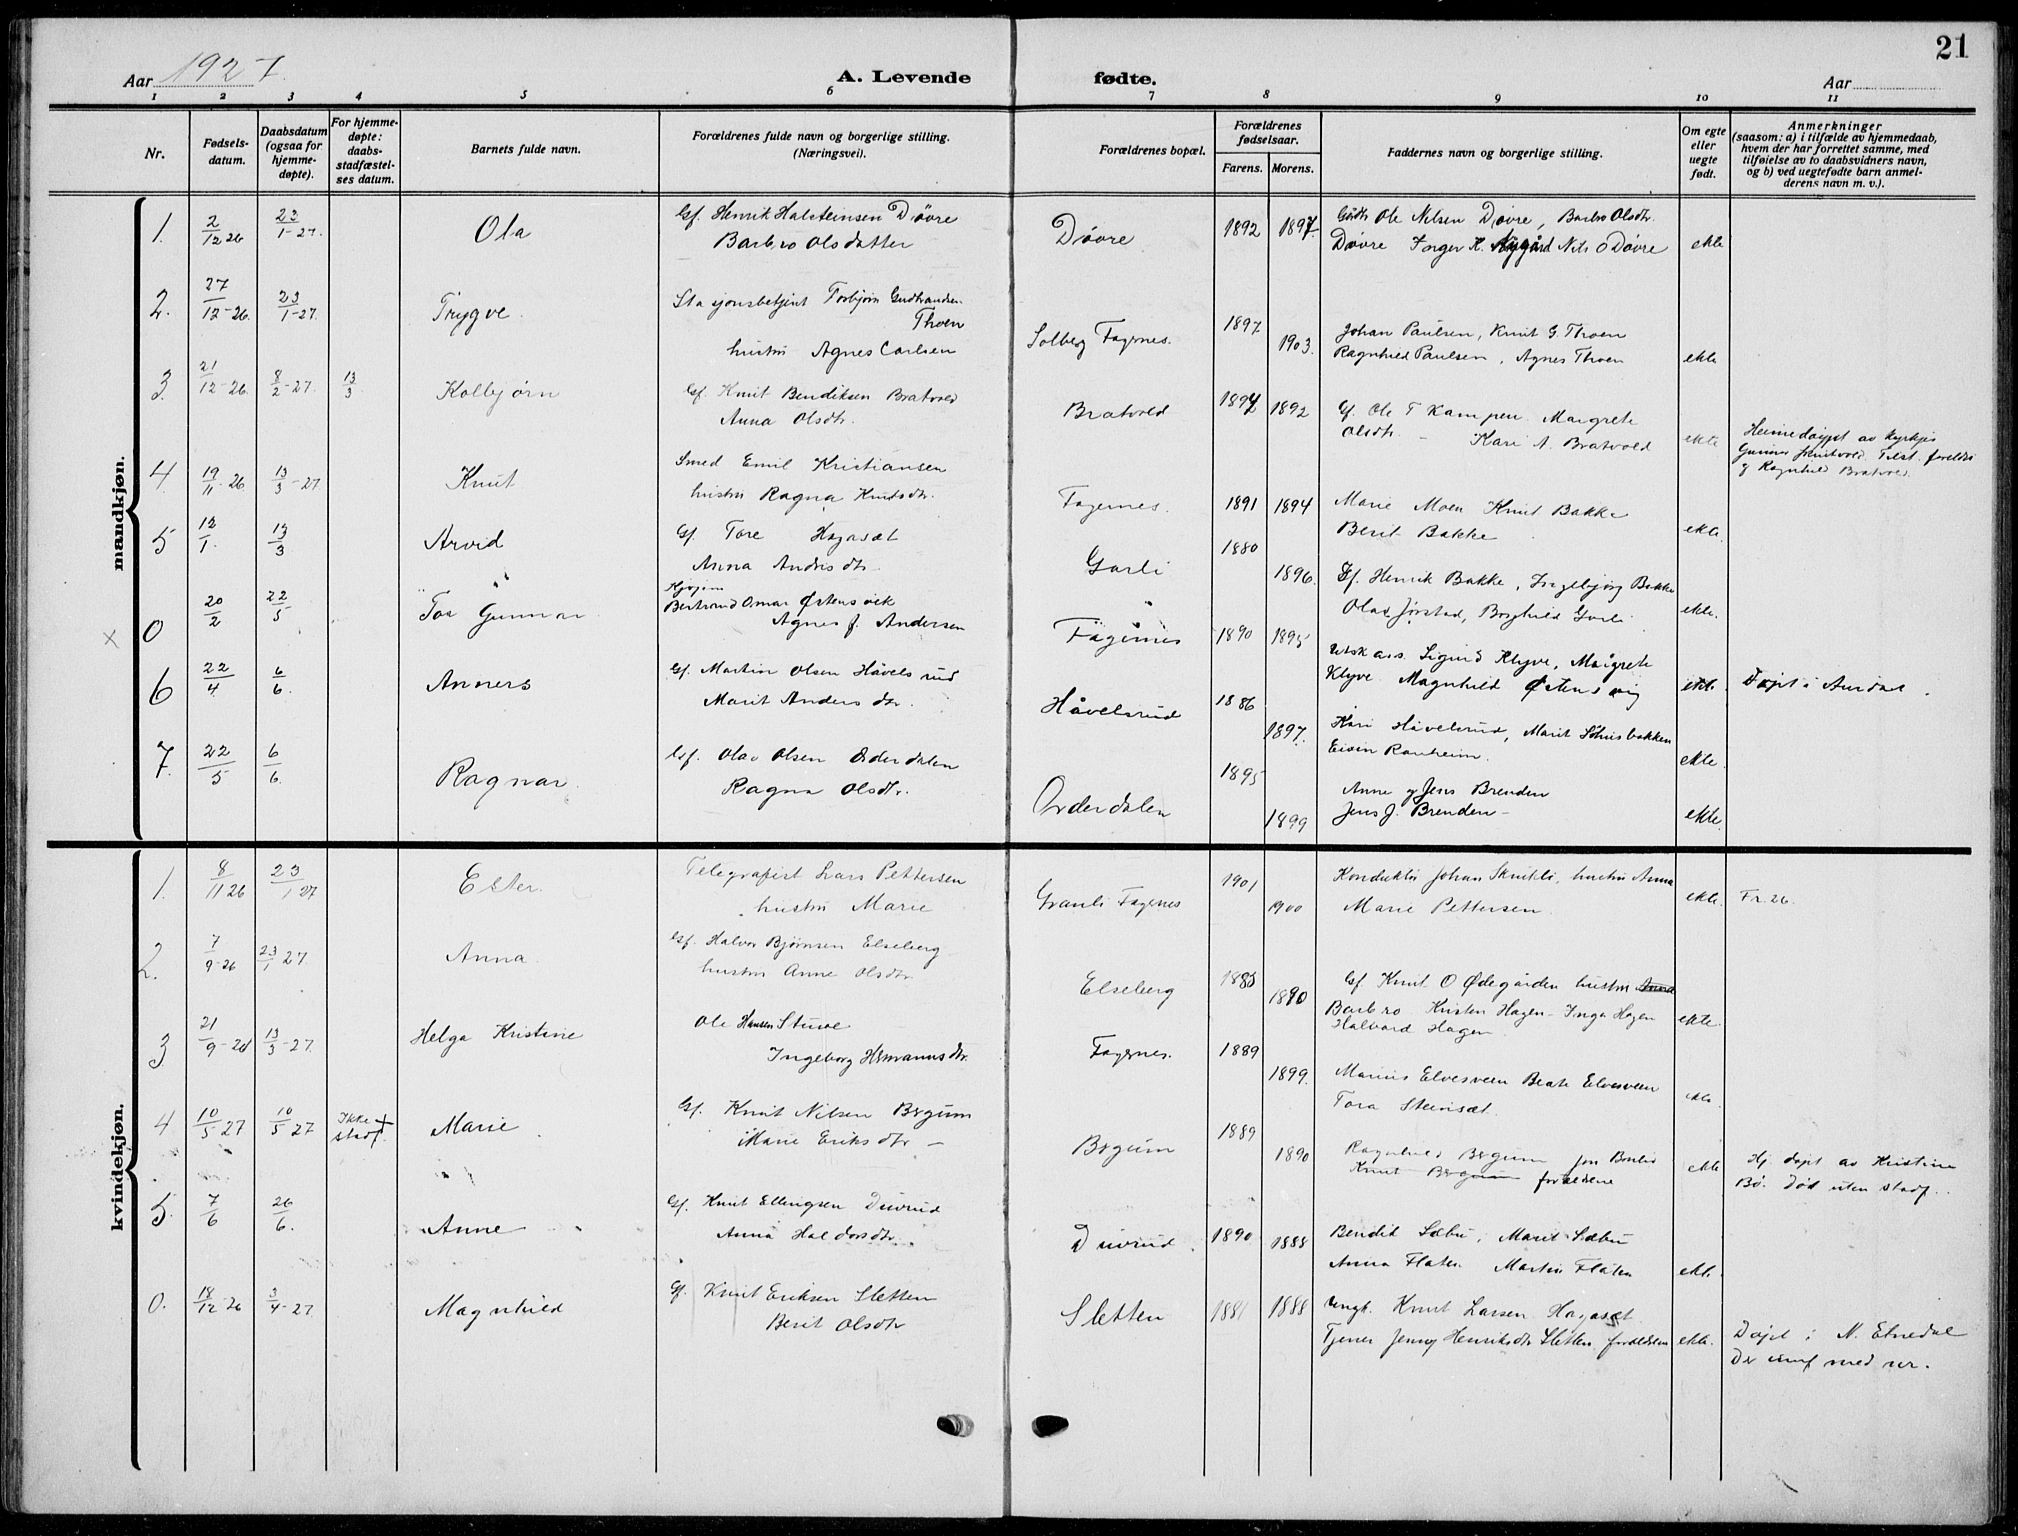 21
Aar 1927.
A. Levende fødte.
Aar
1 2 3 4 5 6 7 8 9 10 11
Nr.
Fødsels-
datum.
Daabsdatum
(ogsaa for
hjemme-
døpte).
For hjemme-
døpte:
daabs-
stadfæstel-
ses datum.
Barnets fulde navn.
Forældrenes fulde navn og borgerlige stilling.
(Næringsvei).
Forældrenes bopæl.
Forældrenes
fødselsaar.
Farens. Morens.
Faddernes navn og borgerlige stilling.
Om egte
eller
uegte
født.
Anmerkninger
(saasom: a) i tilfælde av hjemmedaab,
hvem der har forrettet samme, med
tilføielse av to daabsvidners navn,
og b) ved uegtefødte barn anmel-
derens navn m. v.).
mandkjøn.
1. 2/12 26 23/1-27. Ola Gf. Henrik Halsteinsen Døvre Døvre 1892 1897 Ole Nilsen Døvre, Barbro Olsdtr.
Barbro Olsdatter Døvre Inger K. Nygård Nils O Døvre ekte
2. 27/12-26. 23/1-27. Trygve. Stasjonsbetjent Torbjørn Gudbrandsen
Thoen Solberg Fagernes. 1897 1903. Johan Paulsen, Knut G. Thoen
hustru Agnes Carlsen Ragnhild Paulsen, Agnes Thoen ekte
3. 21/12-26. 8/2-27. 13/3 Kolbjørn Gf. Knut Bendiksen Bratvold Bratvold 1892 Gf. Ole T Kampen. Margrete
Anna Olsdtr. Olsdtr. - Kari A. Bratvold ekte
Heimedøypt av
Ragnhild Bratvold.
4. 19/11-26 13/3-27 Knut Smed Emil Kristiansen Fagernes. 1891 1894 Marie Moen Knut Bakke
hustru Ragna Knutsdtr. Berit Bakke ekte.
5 12/1. 13/3 Arvid Gf. Tore Høgaset Garli 1880 1896. Gf. Henrik Bakke, Ingebjørg Bakke
Anna Andrisdtr. Olav Jørstad, Borghild Garli ekte.
x 0 20/2 22/5 Gunnar
Bertrand Omar Østensvik Fagernes 1890 1895 Sigurd Klyve, Margrete
Agnes J. Andersen Klyve Magnhild Østensvig ekte. Døpt i Aurdal.
6 22/4 6/6. Anners Gf. Martin Olsen Håvelsrud Håvelsrud 1886 1897. Kari Håvelsrud, Marit
Marit Andersdtr. Ranheim. ekte.
7. 22/5 6/6. Ragnar. Gf. Olav Olsen Orderdalen Orderdalen 1895 1899 Anne og Jens Brenden
Ragna Olsdtr. Jens J. Brenden- ekte.
kvindekjøn.
1. 8/11 26 23/1 27 Ester. Telegrafist Lars Pettersen Granli Fagernes 1901 1900 Konduktør Johan hustru Anna
hustru Marie Marie Pettersen. ekte. Fr. 26.
2. 7/9-26 23/1 27. Anna Gf. Halvor Bjørnsen Elseberg Elseberg 1890 Gf. Knut O Ødegården hustru Anna
hustru Anne Olsdtr. Barbro Kristen Hagen- Inga Hagen ekte
Halvard Hagen
3. 21/9 13/3-27. Helga Kristine Ole Hansen Stuve Fagernes. 1889 1899. Marius Elvesveen Beate Elvesveen
Ingeborg Hermannsdtr. Tora Steinsæt. ekte.
4 10/5 27 10/5 27 Ikke stadf. + Marie Gf. Knut Nilsen Bergum Bergum 1889 1890 Ragnhild Bergum
Marie Eriksdtr - Knut Bergum foreldrene ekte
Hj. døpt av Kristine
Bø. Død uten stadf.
5. 7/6 26/6. Anne Gf. Knut Ellingsen Duvrud Duvrud 1890 1888 Bendik Sæbu, Marit Sæbu
Anna Haldorsdtr. Anna Flaten Martin Flaten ekte.
0. 18/12-26 3/4-27 Magnhild Gf. Knut Eriksen Sletten Sletten 1881 1888 Ungk. Knut Larsen Høgaset.
Berit Olsdtr Tjener Jenny Henriksdtr Sletten. foreldrene ekte.
Døpt i N. Etnedal
med nr.